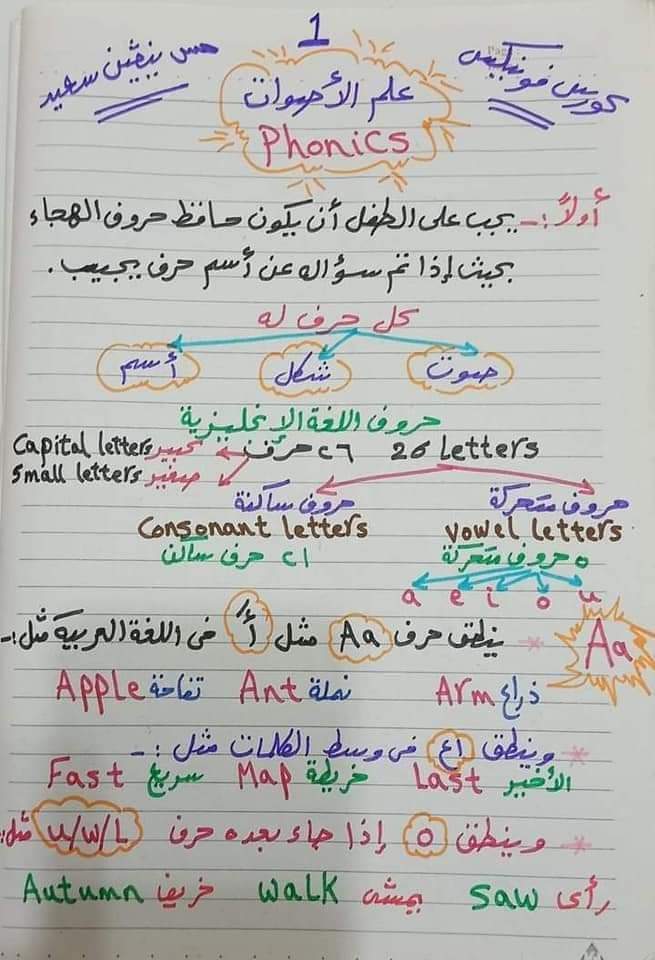 1
كورس فونيكس
مس نيفين سعيد
علم الأصوات
Phonics
أولاً :- يجب على الطفل أن يكون حافظ حروف الهجاء
بحيث إذا تم سؤاله عن أسم حرف يجيب .
كل حرف له
صوت شكل أسم
حروف اللغة الإنجليزية
26 Letters ٢٦ حرف كبير Capital letters
صغير Small letters
حروف متحركة حروف ساكنة
vowel letters Consonant letters
٥ حروف متحركة ٢١ حرف ساكن
a e i o u
Aa
* ينطق حرف Aa مثل أَ فى اللغة العربية مثل :-
ذراع Arm نملة Ant تفاحة Apple
* وينطق اع فى وسط الكلمات مثل :-
الأخير Last خريطة Map سريع Fast
* وينطق o إذا جاء بعده حرف u/w/L مثل:
رأى saw يمشى walk خريف Autumn